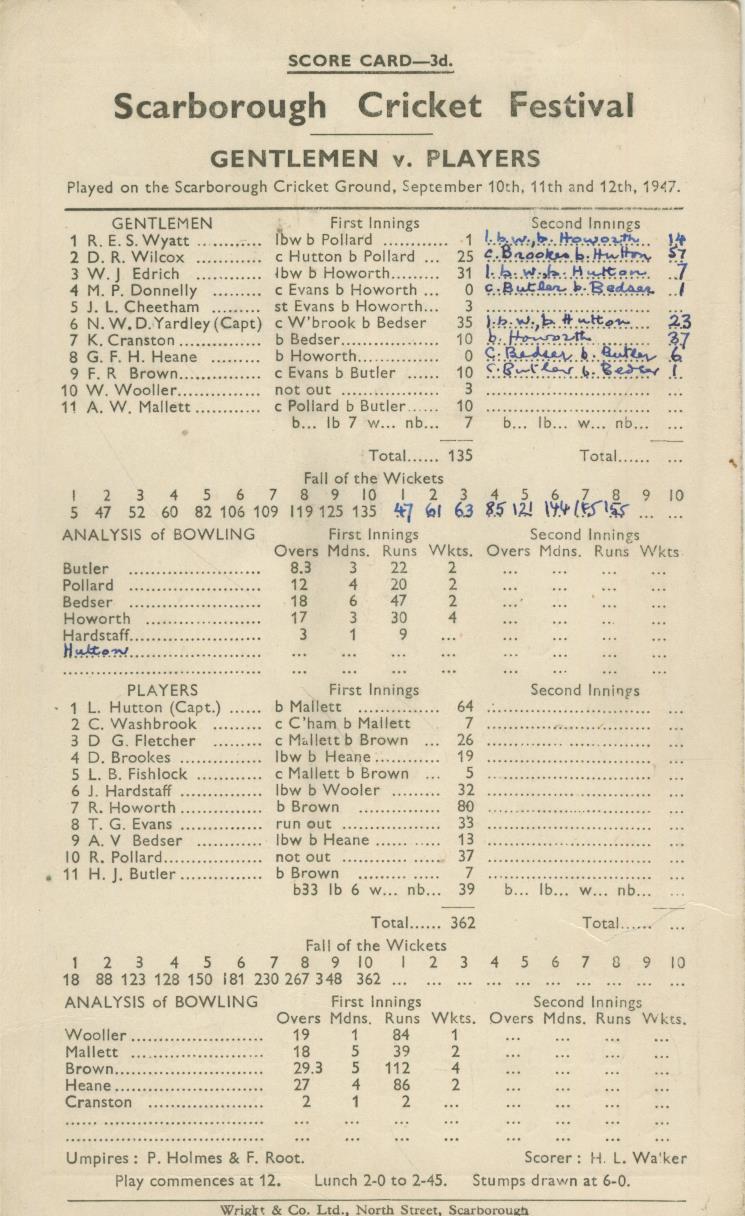 SCORE CARD—3d.
Scarborough Cricket Festival
GENTLEMEN v. PLAYERS
Played on the Scarborough Cricket Ground, September 10th, 11th and 12th, 1947.
GENTLEMEN First Innings Second Innings
1 R. E. S. Wyatt ........... lbw b Pollard ........... 1 l.b.w., b. Howorth ... 14
2 D. R. Wilcox ............. c Hutton b Pollard ... 25 c. Brookes b. Hutton 57
3 W. J Edrich ............... lbw b Howorth...... 31 l.b.w. b. Hutton ... 7
4 M. P. Donnelly ......... c Evans b Howorth ... 0 c. Butler b. Bedser ... 1
5 J. L. Cheetham ......... st Evans b Howorth... 3 ........................... ...
6 N. W. D. Yardley (Capt) c W'brook b Bedser 35 l.b.w., b. Hutton ... 23
7 K. Cranston ............... b Bedser............... 10 b. Howorth ... 37
8 G. F. H. Heane ......... b Howorth............ 0 c. Bedser b. Butler 6
9 F. R Brown............... c Evans b Butler ...... 10 c. Butler b. Bedser 1
10 W. Wooller............... not out ............... 3 ........................... ...
11 A. W. Mallett............ c Pollard b Butler...... 10 ........................... ...
b... lb 7 w... nb... 7 b... lb... w... nb... ...
Total...... 135 Total...... ...
Fall of the Wickets
1 2 3 4 5 6 7 8 9 10 1 2 3 4 5 6 7 8 9 10
5 47 52 60 82 106 109 119 125 135 47 61 63 85 121 144 155 ... ...
ANALYSIS of BOWLING First Innings Second Innings
Overs Mdns. Runs Wkts. Overs Mdns. Runs Wkts
Butler ..................... 8.3 3 22 2 ... ... ... ...
Pollard ..................... 12 4 20 2 ... ... ... ...
Bedser ..................... 18 6 47 2 ... ... ... ...
Howorth .................. 17 3 30 4 ... ... ... ...
Hardstaff..................... 3 1 9 ... ... ... ... ...
Hutton..................... ... ... ... ... ... ... ... ...
................................. ... ... ... ... ... ... ... ...
PLAYERS First Innings Second Innings
1 L. Hutton (Capt.) ...... b Mallett ............... 64 ........................... ...
2 C. Washbrook ......... c C'ham b Mallett 7 ........................... ...
3 D G. Fletcher ......... c Mallett b Brown ... 26 ........................... ...
4 D. Brookes ............... lbw b Heane............ 19 ........................... ...
5 L. B. Fishlock ............ c Mallett b Brown ... 5 ........................... ...
6 J. Hardstaff ............... lbw b Wooler ......... 32 ........................... ...
7 R. Howorth ............... b Brown ............... 80 ........................... ...
8 T. G. Evans ............... run out .................. 33 ........................... ...
9 A. V Bedser ............ lbw b Heane ........... 13 ........................... ...
10 R. Pollard.................. not out .................. 37 ........................... ...
11 H. J. Butler ............... b Brown ............... 7 ........................... ...
b33 lb 6 w... nb... 39 b... lb... w... nb... ...
Total...... 362 Total...... ...
Fall of the Wickets
1 2 3 4 5 6 7 8 9 10 1 2 3 4 5 6 7 8 9 10
18 88 123 128 150 181 230 267 348 362 ... ... ... ... ... ... ... ... ... ...
ANALYSIS of BOWLING First Innings Second Innings
Overs Mdns. Runs Wkts. Overs Mdns. Runs Wkts.
Wooller ..................... 19 1 84 1 ... ... ... ...
Mallett ..................... 18 5 39 2 ... ... ... ...
Brown........................ 29.3 5 112 4 ... ... ... ...
Heane........................ 27 4 86 2 ... ... ... ...
Cranston .................. 2 1 2 ... ... ... ... ...
................................. ... ... ... ... ... ... ... ...
................................. ... ... ... ... ... ... ... ...
Umpires : P. Holmes & F. Root. Scorer : H. L. Walker
Play commences at 12. Lunch 2-0 to 2-45. Stumps drawn at 6-0.
Wright & Co. Ltd., North Street, Scarborough